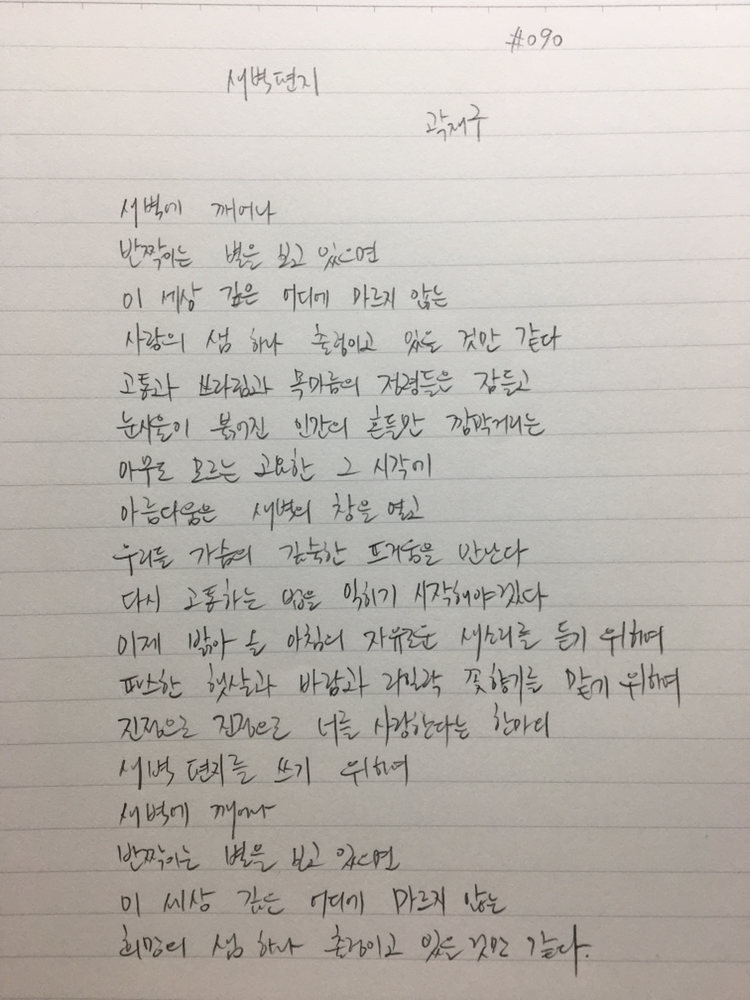 #090
새벽편지
곽재구
새벽에 깨어나
반짝이는 별을 보고 있으면
이 세상 깊은 어디에 마르지 않는
사랑의 샘 하나 출렁이고 있을 것만 같다
고통과 쓰라림과 목마름의 정령들은 잠들고
눈시울이 붉어진 인간의 혼들만 깜박거리는
아무도 모르는 고요한 그 시각에
아름다움은 새벽의 창을 열고
우리들 가슴의 깊숙한 뜨거움을 만난다
다시 고통하는 법을 익히기 시작해야겠다
이제 밝아 올 아침의 자유로운 새소리를 듣기 위하여
따스한 햇살과 바람과 라일락 꽃향기를 맡기 위하여
진정으로 진정으로 너를 사랑한다는 한마디
새벽 편지를 쓰기 위하여
새벽에 깨어나
반짝이는 별을 보고 있으면
이 세상 깊은 어디에 마르지 않는
희망의 샘 하나 출렁이고 있을 것만 같다.